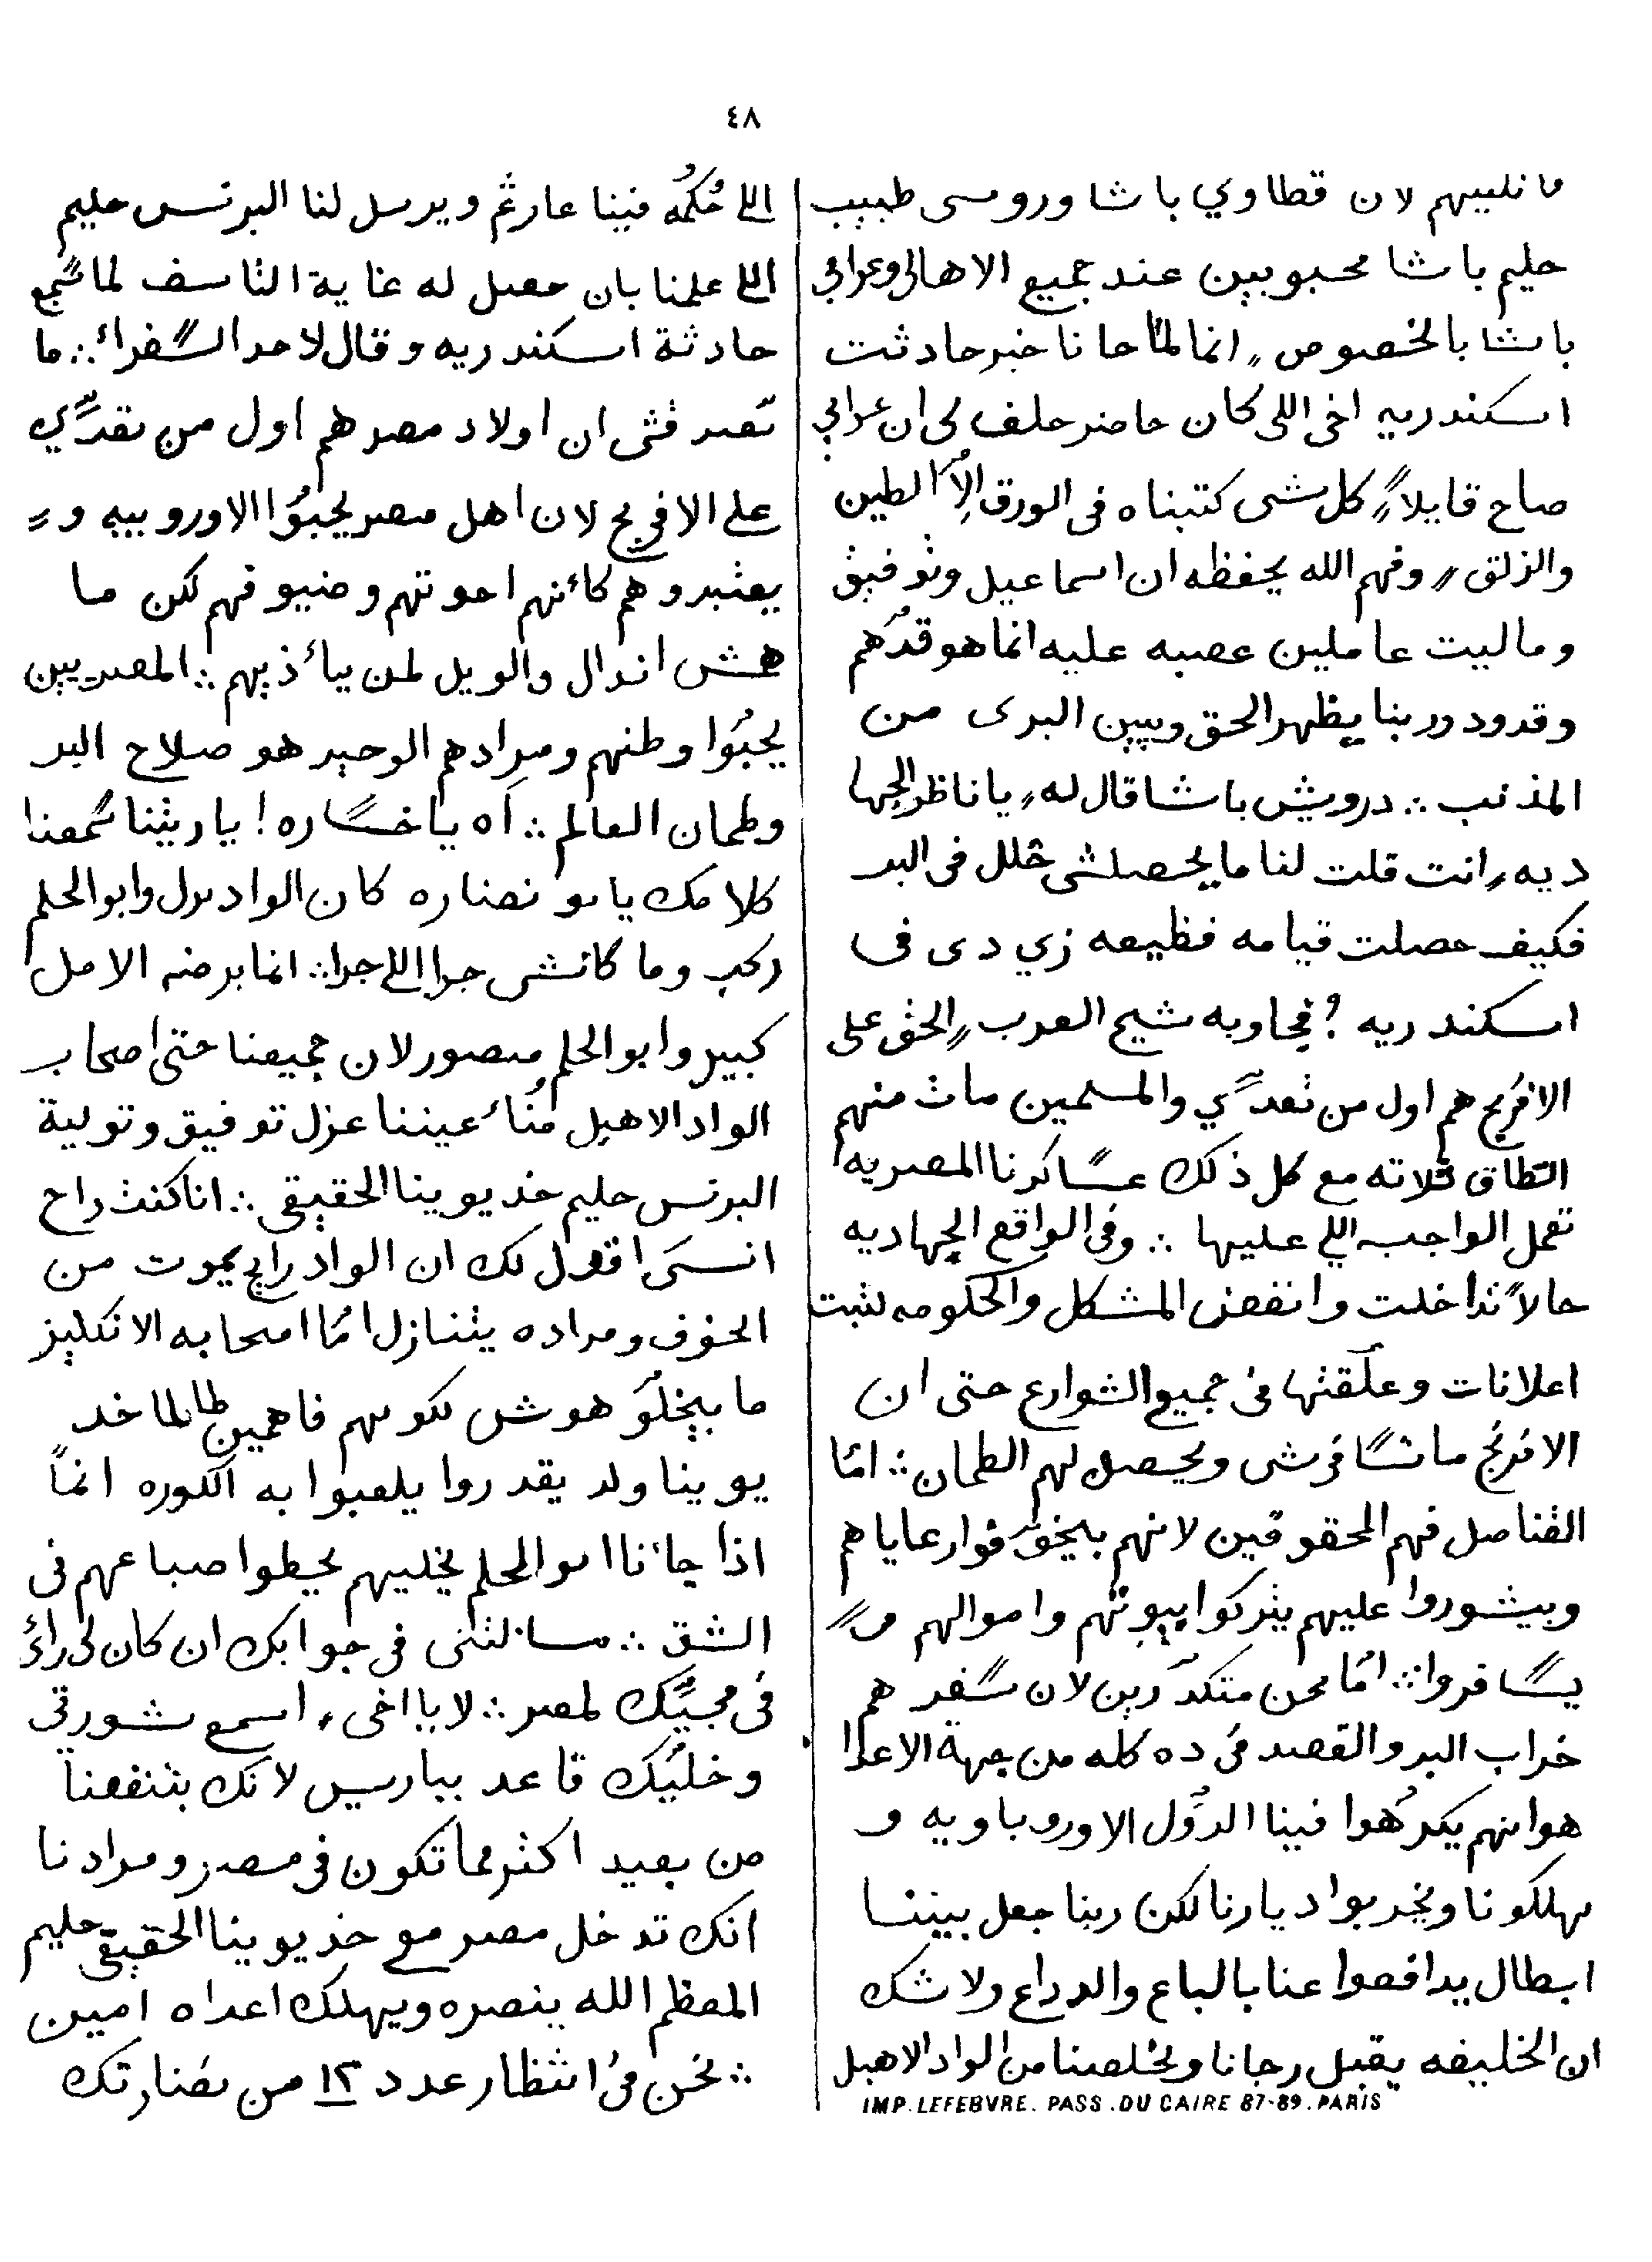 ٤٨
ما نلبيهم لان قطاوي باشا وروسى طبيب
حليم باشا محبوبين عند جميع الاهالى وعرابى
باشا بالخصوص، انما لمّا جانا خبر حادثت
اسكندريه اخى اللى كان حاضر حلف لى ان عرابى
صاح قايلاً، كل شى كتبناه فى الورق الاّ الطين
والزلق، وفهم الله يحفظه ان اسماعيل وتوفيق
وماليت عاملين عصبه عليه انما هو قدّهم
وقدود وربنا يظهر الحق ويبين البرى من
المذنب ∴ درويش باشا قال له، يا ناظر الجها
ديه، انت قلت لنا ما يحصلشى خلل فى البر
فكيف حصلت قيامه فظيعه زي دى فى
اسكندريه ؟ فجاوبه شيخ العرب، الحق على
الافرنج هم اول من تعدّي والمسلمين مات منهم
التطاق ثلاته مع كل ذلك عساكرنا المصريه
تعمل الواجب اللي عليها ∴ وفى الواقع الجهاديه
حالاً تداخلت وانفض المشكل والحكومه لثبت
اعلانات وعلّقتها فى جميع الشوارع حتى ان
الافرنج ما تسافرشى ويحصل لهم الطمان ∴ امّا
القناصل فهم المحقوقين لانهم بيخوّفوا رعاياهم
وبيشوروا عليهم يتركوا بيوتهم واموالهم و
يسافروا ∴ امّا نحن متكدّرين لان سفرهم
خراب البر والقصد فى ده كله من جهة الاعدا
هوانهم يكرّهوا فينا الدول الاوروباويه و
يهلكونا ويخربوا ديارنا لكن ربنا جعل بيننا
ابطال يدافعوا عنا بالباع والدراع ولا شك
ان الخليفه يقبل رجانا ويخلصنا من الواد الاهبل
IMP. LEFEBVRE. PASS. DU CAIRE 87-89. PARIS
اللى حُكمُه فينا عار عم ويرسل لنا البرنس حليم
اللى علمنا بان حصل له غاية التاسف لما سمع
حادثة اسكندريه وقال لاحد السفراء ∴ ما
تصدقش ان اولاد مصر هم اول من تعدّي
على الافرنج لان اهل مصر يحبوا الاوروبيه و
يعتبروهم كأنهم اخوتهم وضيوفهم لكن ما
همش اندال والويل لمن يأذيهم ∴ المصريين
يحبوا وطنهم ومرادهم الوحيد هو صلاح البر
وطمان العالم ∴ آه يا خساره ! ياريتنا سمعنا
كلامك يابو نضاره كان الواد نزل وابو الحلم
ركب وما كانشى جرا اللى جرا ∴ انما برضه الامل
كبير وابو الحلم منصور لان جميعنا حتى اصحاب
الواد الاهبل مُناء عيننا عزل توفيق وتولية
البرنس حليم خديوينا الحقيقى ∴ انا كنت راح
انسى اقول لك ان الواد رايح يموت من
الخوف ومراده يتنازل امّا اصحابه الانكليز
ما بيخلّوهوش لكونهم فاهمين طالما خد
يوينا ولد يقدروا يلعبوا به الكوره انماً
اذا جاءنا ابو الحلم يخليهم يحطوا صباعهم فى
الشق ∴ سالتنى فى جوابك ان كان لى راءى
فى مجيّك لمصر ∴ لا يا اخى، اسمع شورتى
وخليّك قاعد بباريس لانك بتنفعنا
من بعيد اكثر مما تكون فى مصر ومرادنا
انك تدخل مصر مع خديوينا الحقيقى حليم
المعظم الله ينصره ويهلك اعداه امين
∴ نحن فى انتظار عدد ١٢ من نضارتك